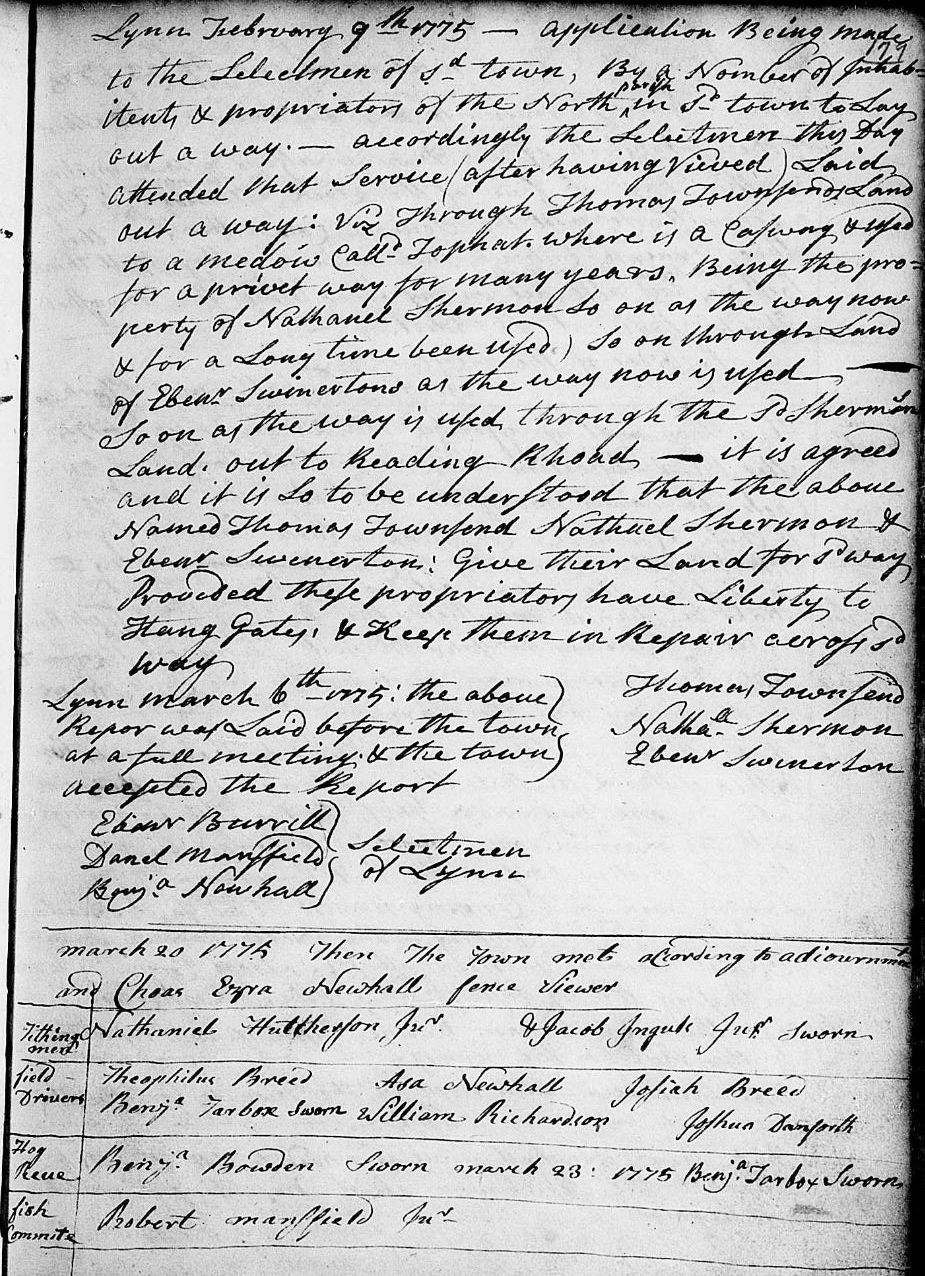 Lynn February 9th 1775 — application Being made
to the Selectmen of sd town, By a Nomber of Inhab=
itents & propriators of the North parish in sd town to Lay
out a way. — accordingly the Selectmen this Day
attended that Service (after having Viewed) Laid
out a way: Viz Through Thomas Townsends Land
to a medow Calld Tophat. where is a Casway & used
for a privet way for many years. Being the pro=
perty of Nathanel Shermon So on as the way now
& for a Long time been used) So on through Land
of Ebenr Swinertons as the way now is used —
So on as the way is used through the sd Shermons
Land. out to Reading Rhoad — it is agreed
and it is So to be understood that the above
Named Thomas Townsend Nathael Shermon &
Ebenr Swinerton: Give their Land for sd way
Provided these propriators have Liberty to
Hang Gates, & Keep them in Repair across sd
way
Thomas Townsend
Nathall Shermon
Ebenr Swinerton
Lynn march 6th 1775: the above
Repor was Laid before the town
at a full meeting & the town
accepted the Report
Burrill
Danel Mansfield
Benja Newhall
Selectmen
of Lynn
march 20 1775 Then The Town met acording to adiournment
and Choas Ezra Newhall fence Viewer
Tithing
men
Nathaniel Hutcherson Junr. & Jacob Ingals Junr Sworn
field
Drivers
Theophilus Breed Asa Newhall Josiah Breed
Benja Tarbox Sworn William Richardson Joshua Danforth
Hog
Reeve
Benja. Bowden Sworn march 23: 1775 Benja. Tarbox Sworn
fish
Commite
Robert mansfield Junr